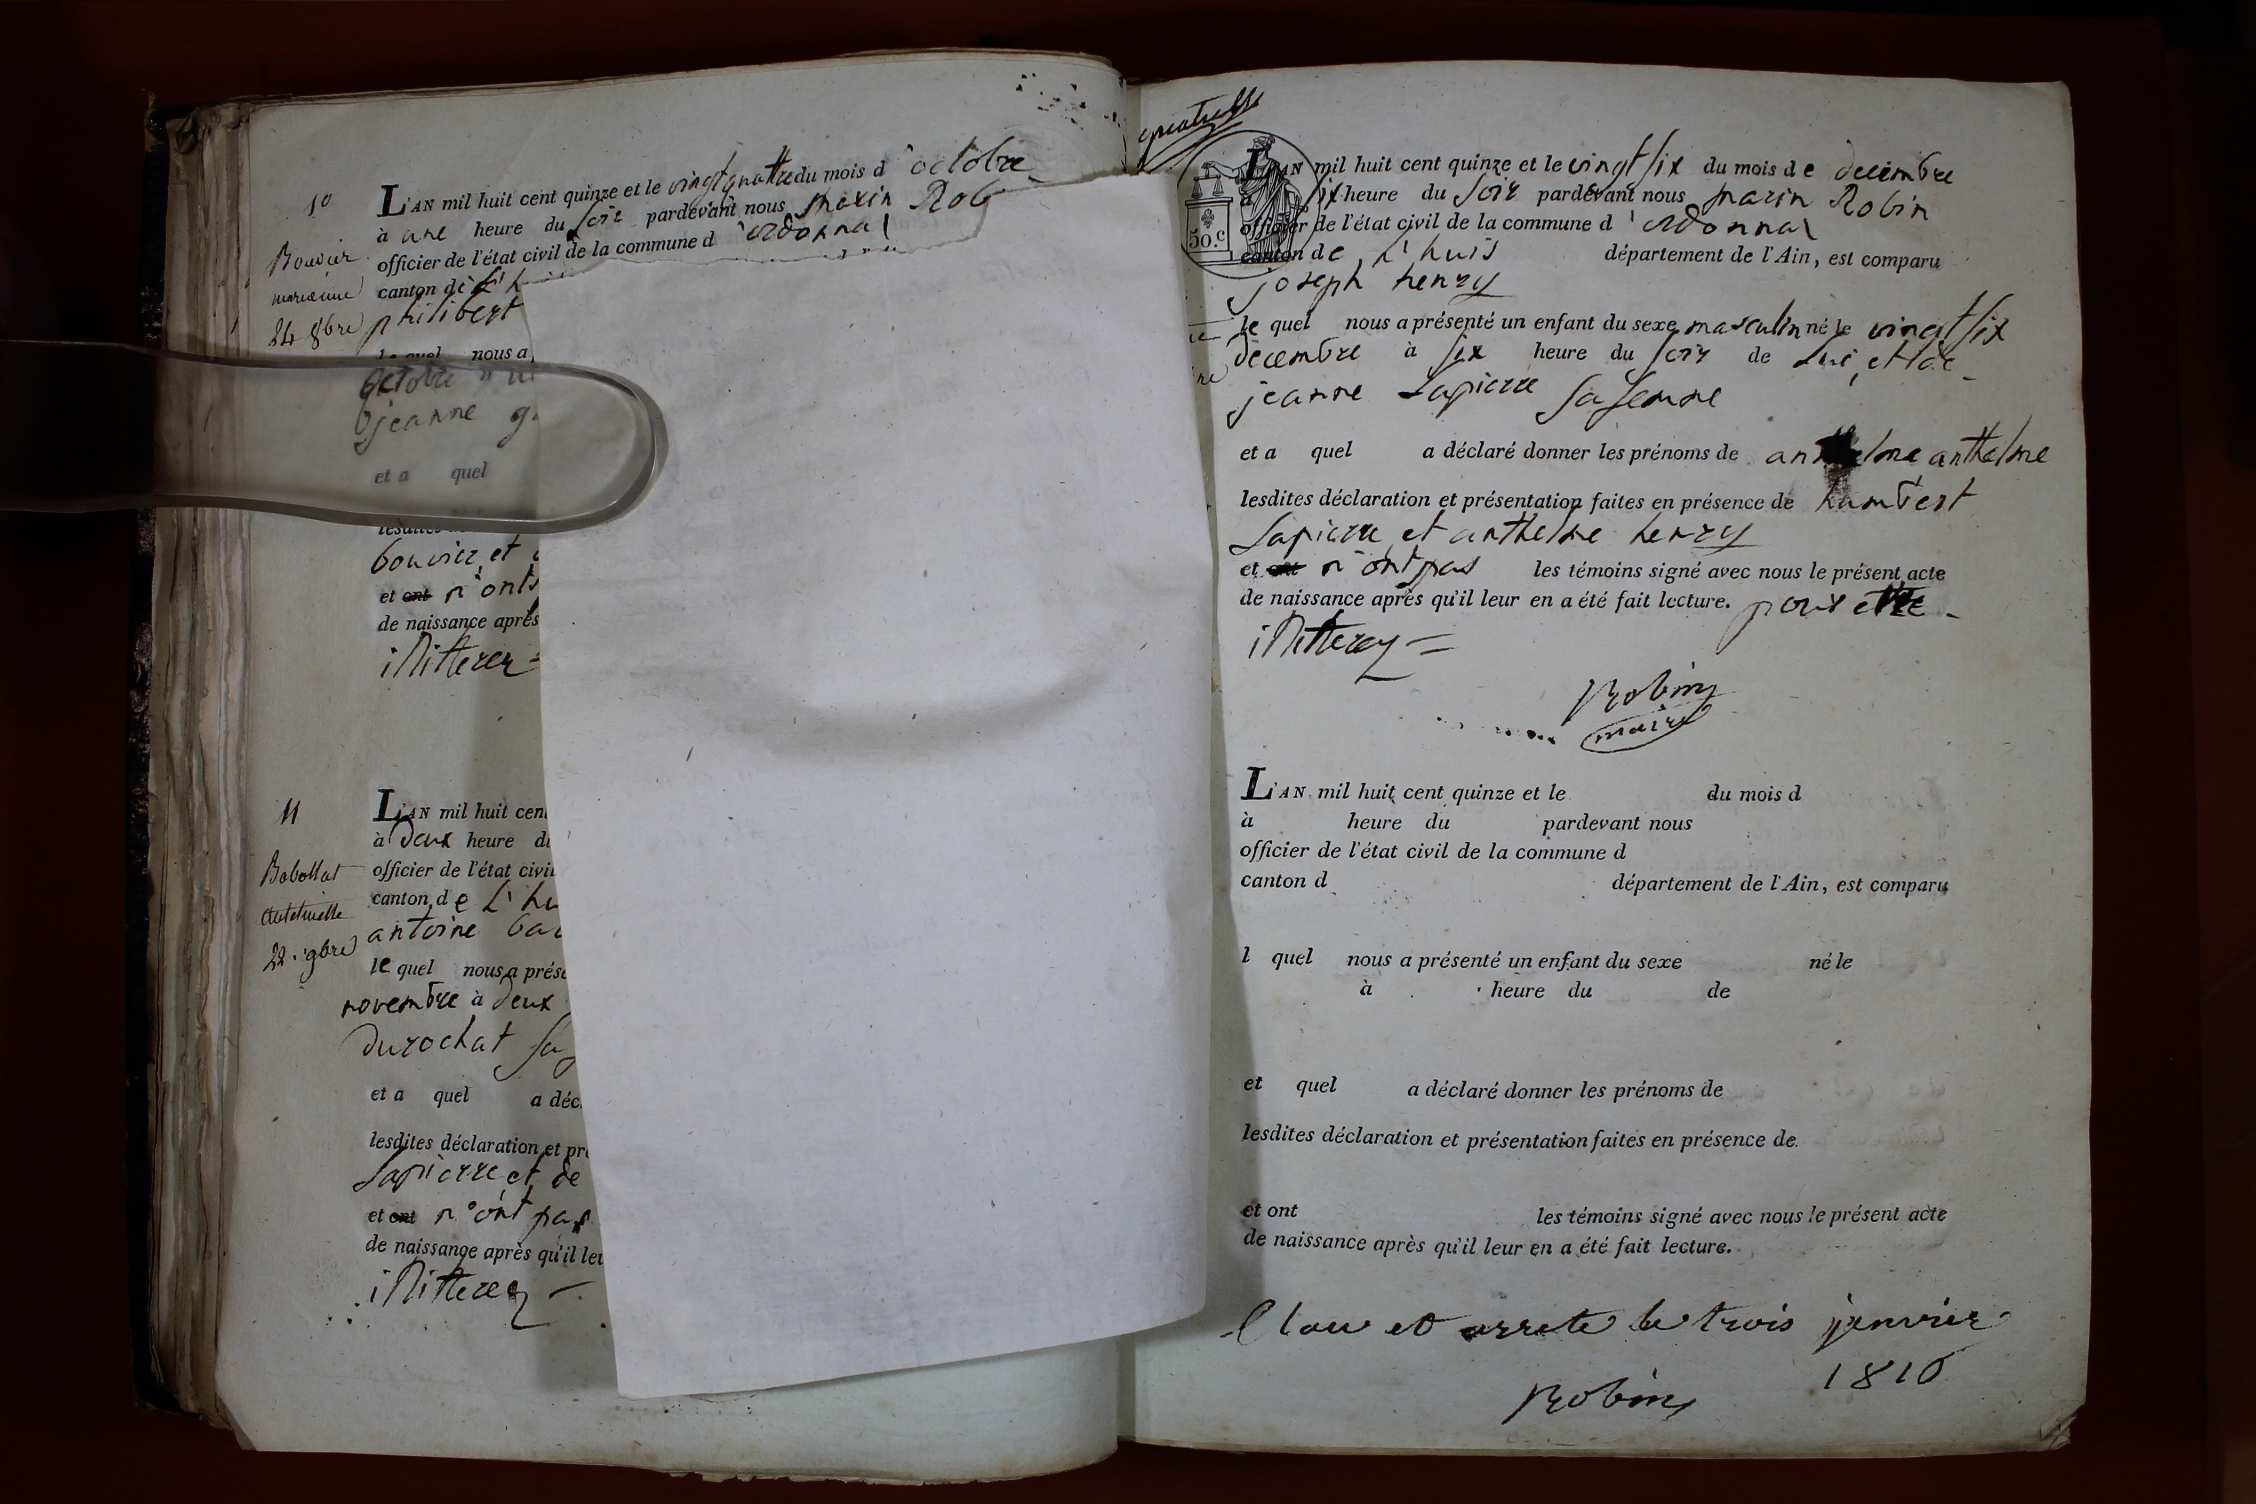 10
Bouvier
marianne
24 8bre
L'AN mil huit cent quinze et le vingt quattre du mois d'octobre
à une heure du soir pardevant nous marin Rob
officier de l'état civil de la commune d'ordonnal
canton de L'h
philibert
le quel nous a
octobre
jeanne
et a quel
bouvier et
et ont n'onts
de naissance après
illitterez
11
22 9bre
L'AN mil huit cen
à deux heure du
officier de l'état civil
canton de L'hu
antoine
le quel nous a prése
novembre à deux
durochat sa
et a quel a déc
lesdites déclaration et pr
Lapierre et de
et ont n'ont pas
de naissance après qu'il leu
illitterez
quatre
50.c
L'AN mil huit cent quinze et le vingt six du mois de decembre
à six heure du soir pardevant nous marin Robin
officier de l'état civil de la commune d'ordonnal
canton de L'huis département de l'Ain, est comparu
joseph henry
le quel nous a présenté un enfant du sexe masculin né le vingt six
decembre à six heure du soir de lui et de
jeanne Lapierre sa femme
et a quel a déclaré donner les prénoms de anthelme anthelme
lesdites déclaration et présentation faites en présence de humbert
Lapierre et anthelme henry
et ont n'ont pas les témoins signé avec nous le présent acte
de naissance après qu'il leur en a été fait lecture. pour etre
illitterez
Robin
maire
L'AN mil huit cent quinze et le du mois d
à heure du pardevant nous
officier de l'état civil de la commune d
canton d département de l'Ain, est comparu
l quel nous a présenté un enfant du sexe né le
à heure du de
et quel a déclaré donner les prénoms de
lesdites déclaration et présentation faites en présence de
et ont les témoins signé avec nous le présent acte
de naissance après qu'il leur en a été fait lecture.
Clau et arrete le trois janvier
1816
Robin